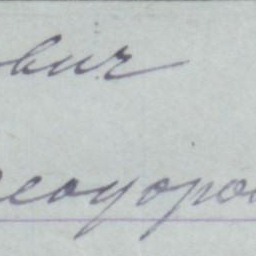 вич
еодоров